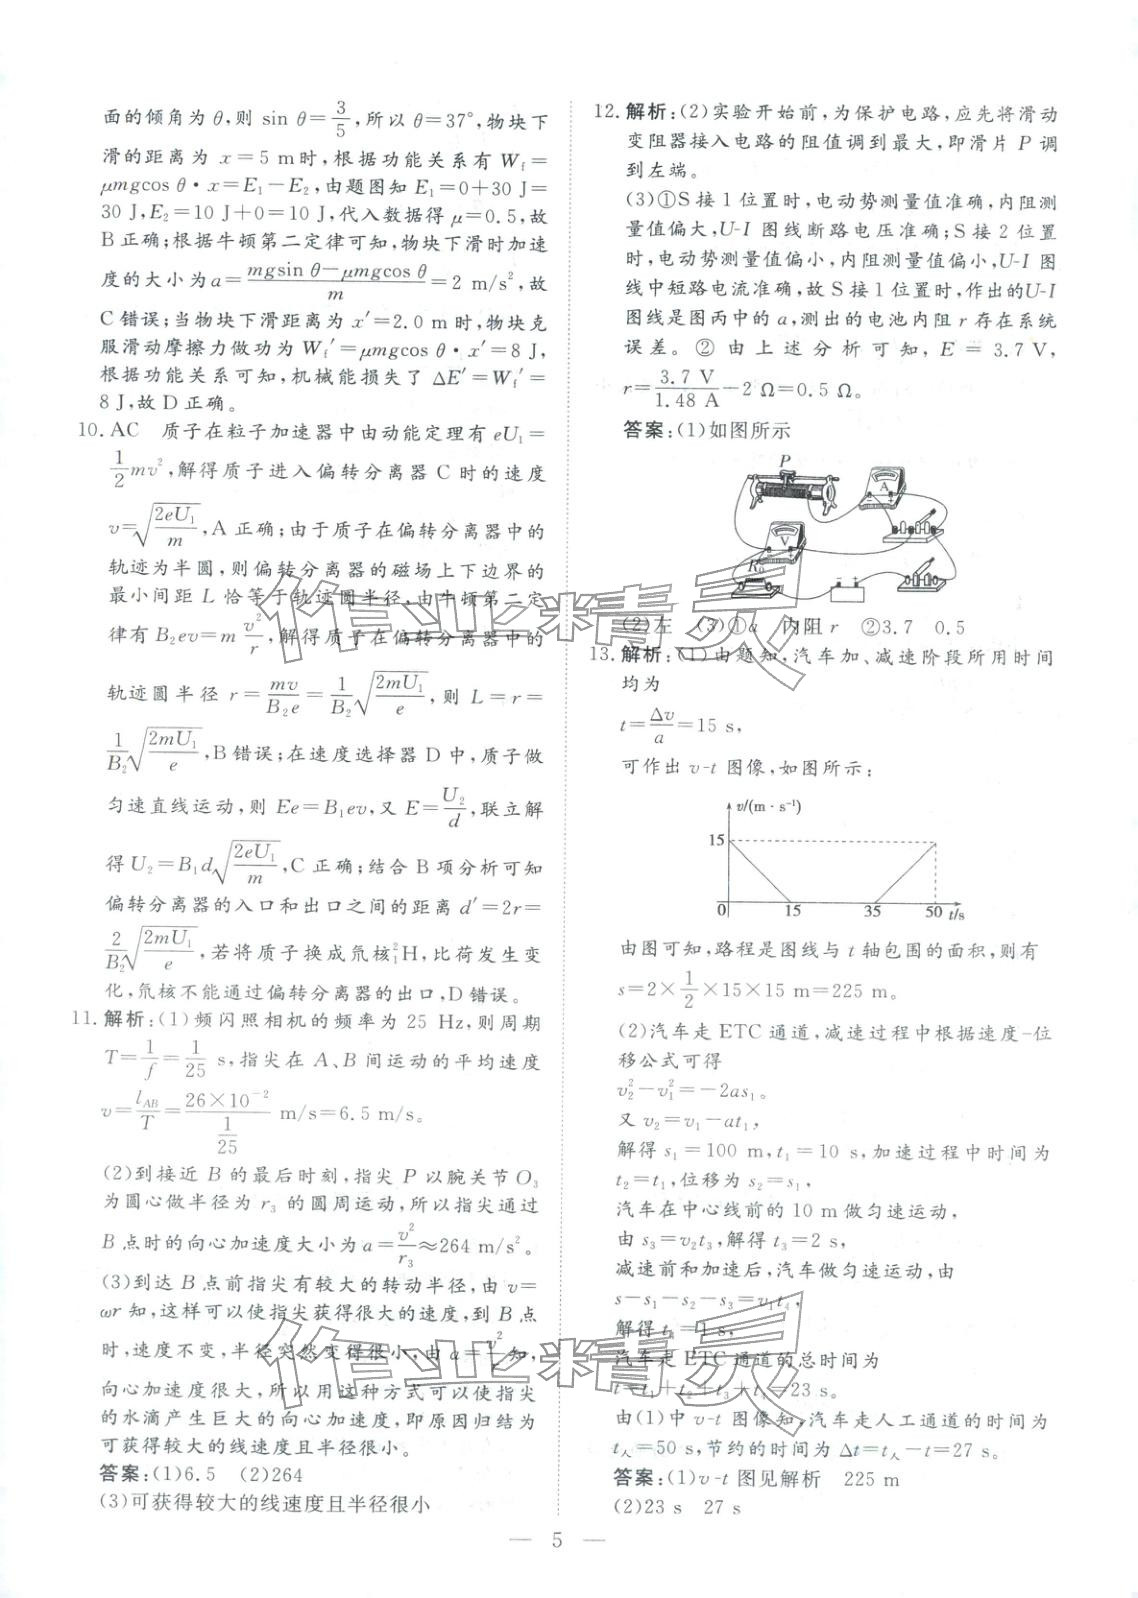 面的倾角为 θ,则 sin θ=3/5,所以 θ=37°,物块下
滑的距离为 x=5 m时,根据功能关系有 Wf=
μmgcos θ·x=E₁-E₂,由题图知 E₁=0+30 J=
30 J,E₂=10 J+0=10 J,代入数据得 μ=0.5,故
B正确;根据牛顿第二定律可知,物块下滑时加速
度的大小为 a=(mgsin θ-μmgcos θ)/m=2 m/s²,故
C错误;当物块下滑距离为 x′=2.0 m时,物块克
服滑动摩擦力做功为 Wf′=μmgcos θ·x′=8 J,
根据功能关系可知,机械能损失了 ΔE′=Wf′=
8 J,故 D正确。
10. AC 质子在粒子加速器中由动能定理有 eU₁=
1/2 mv²,解得质子进入偏转分离器 C 时的速度
v=√(2eU₁/m),A 正确;由于质子在偏转分离器中的
轨迹为半圆,则偏转分离器的磁场上下边界的
最小间距 L 恰等于轨迹圆半径,由牛顿第二定
律有 B₂ev=m v²/r,解得质子在偏转分离器中的
轨迹圆半径 r=mv/(B₂e)=1/B₂ √(2mU₁/e),则 L=r=
1/B₂ √(2mU₁/e),B错误;在速度选择器 D 中,质子做
匀速直线运动,则 Ee=B₁ev,又 E=U₂/d,联立解
得 U₂=B₁d√(2eU₁/m),C 正确;结合 B 项分析可知
偏转分离器的入口和出口之间的距离 d′=2r=
2/B₂ √(2mU₁/e),若将质子换成氘核²₁H,比荷发生变
化,氘核不能通过偏转分离器的出口,D错误。
11. 解析:(1)频闪照相机的频率为 25 Hz,则周期
T=1/f=1/25 s,指尖在 A、B 间运动的平均速度
v=l_AB/T=(26×10⁻²)/(1/25) m/s=6.5 m/s。
(2)到接近 B 的最后时刻,指尖 P 以腕关节 O₃
为圆心做半径为 r₃ 的圆周运动,所以指尖通过
B点时的向心加速度大小为 a=v²/r₃≈264 m/s²。
(3)到达 B 点前指尖有较大的转动半径,由 v=
ωr 知,这样可以使指尖获得很大的速度,到 B 点
时,速度不变,半径突然变得很小,由 a=v²/r知,
向心加速度很大,所以用这种方式可以使指尖
的水滴产生巨大的向心加速度,即原因归结为
可获得较大的线速度且半径很小。
答案:(1)6.5 (2)264
(3)可获得较大的线速度且半径很小
12. 解析:(2)实验开始前,为保护电路,应先将滑动
变阻器接入电路的阻值调到最大,即滑片 P 调
到左端。
(3)①S 接 1 位置时,电动势测量值准确,内阻测
量值偏大,U-I 图线断路电压准确;S 接 2 位置
时,电动势测量值偏小,内阻测量值偏小,U-I 图
线中短路电流准确,故 S 接 1 位置时,作出的U-I
图线是图丙中的 a,测出的电池内阻 r 存在系统
误差。② 由上述分析可知,E = 3.7 V,
r=3.7 V/1.48 A-2 Ω=0.5 Ω。
答案:(1)如图所示
P
A
V
R₀
(2)左 (3)①a 内阻 r ②3.7 0.5
13. 解析:(1)由题知,汽车加、减速阶段所用时间
均为
t=Δv/a=15 s,
可作出 v-t 图像,如图所示:
v/(m·s⁻¹)
15
0 15 35 50 t/s
由图可知,路程是图线与 t 轴包围的面积,则有
s=2×1/2×15×15 m=225 m。
(2)汽车走 ETC 通道,减速过程中根据速度-位
移公式可得
v₂²-v₁²=-2as₁。
又 v₂=v₁-at₁,
解得 s₁=100 m,t₁=10 s,加速过程中时间为
t₂=t₁,位移为 s₂=s₁,
汽车在中心线前的 10 m 做匀速运动,
由 s₃=v₂t₃,解得 t₃=2 s,
减速前和加速后,汽车做匀速运动,由
s-s₁-s₂-s₃=v₁t₄,
解得 t₄=1 s,
汽车走 ETC 通道的总时间为
t=t₁+t₂+t₃+t₄=23 s。
由(1)中 v-t 图像知,汽车走人工通道的时间为
t人=50 s,节约的时间为 Δt=t人-t=27 s。
答案:(1)v-t 图见解析 225 m
(2)23 s 27 s
— 5 —
作业精灵
作业精灵